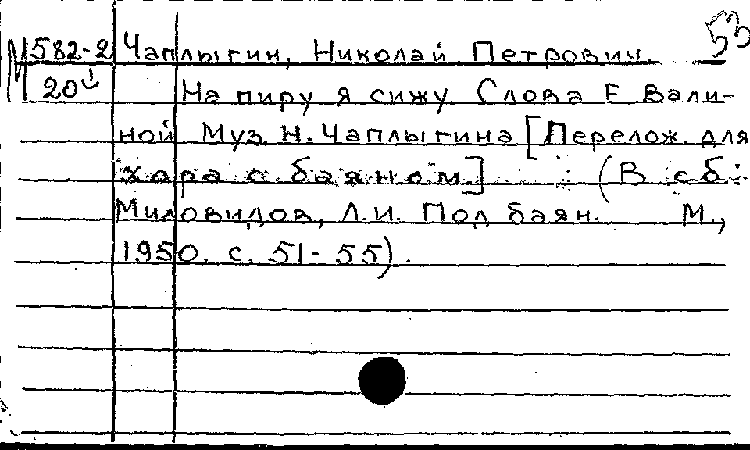 53
М582-2 Чаплыгин, Николай Петрович.
20
На пиру я сижу. Слова Е. Вали-
ной Муз. Н. Чаплыгина [Перелож. для
хора с баяном] : (В сб.:
Миловидов, Л.И. Пол баян. М.,
1950. с. 51-55).